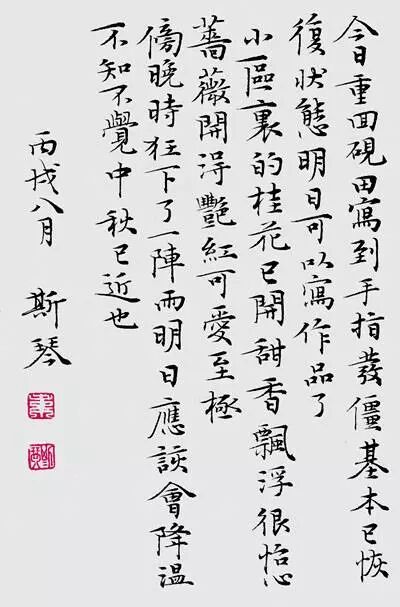 今日重回硯田寫到手指發僵基本已恢
復狀態明日可以寫作品了
小區裏的桂花已開甜香飄浮很怡心
薔薇開得艷紅可愛至極
傍晚時狂下了一陣雨明日應該會降溫
不知不覺中秋已近也
丙戌八月 斯琴